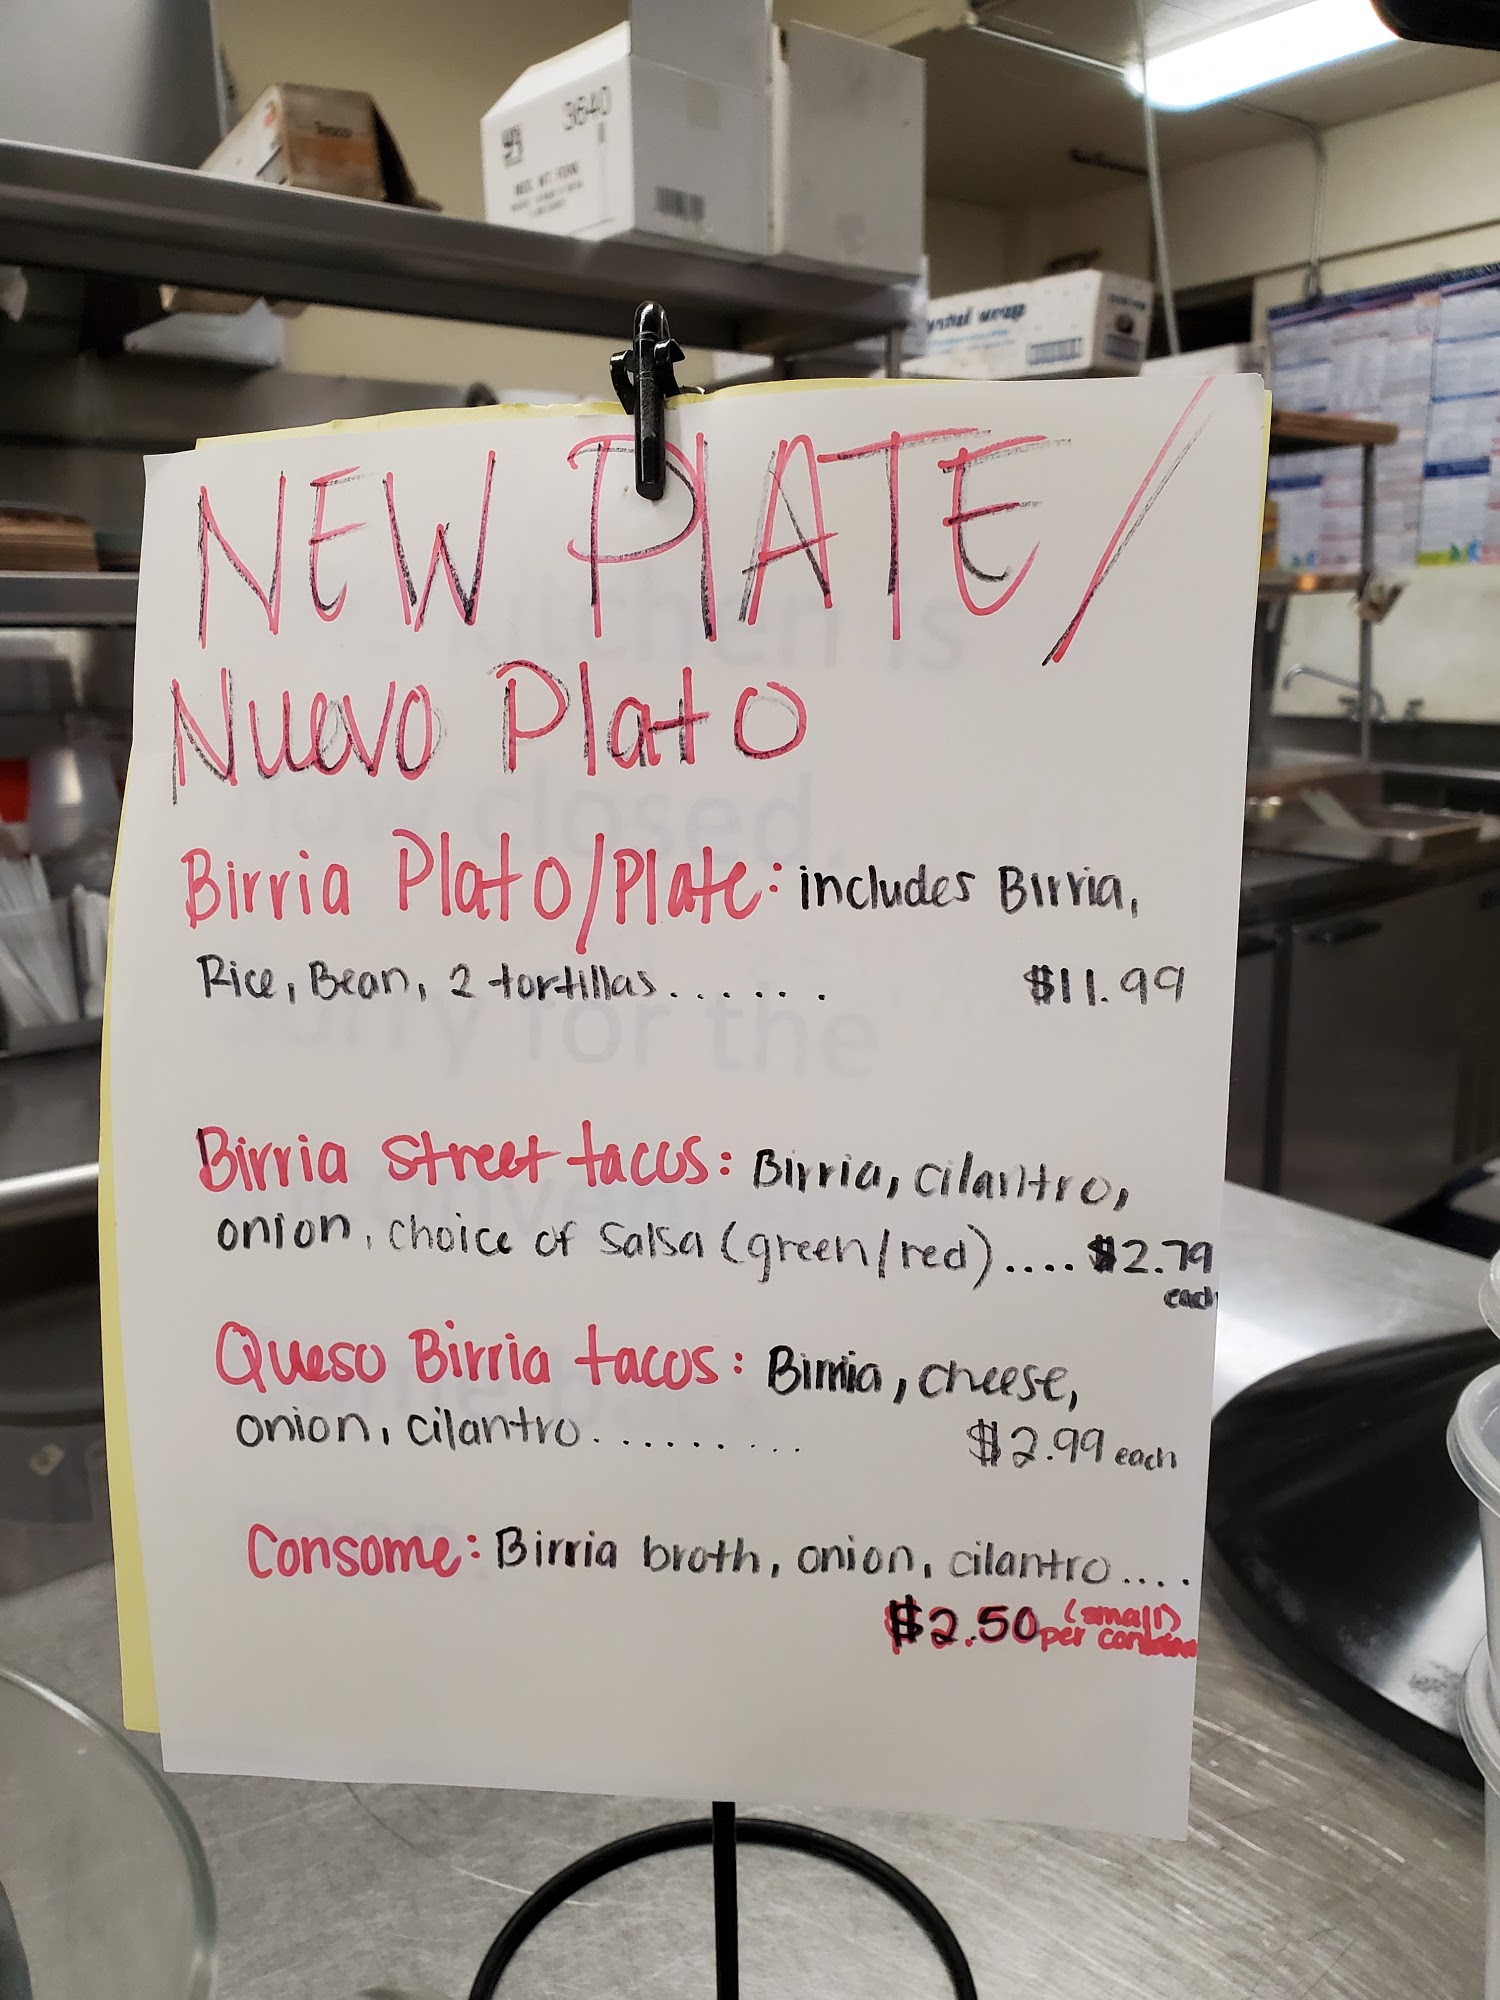 3640
crystal wrap
NEW PLATE/
Nuevo Plato
Birria Plato/Plate: includes Birria,
Rice, Bean, 2 tortillas......
$11.99
Birria street tacos: Birria, cilantro,
onion, choice of salsa (green/red).... $2.79
each
Queso Birria tacos: Birria, cheese,
onion, cilantro.........
$2.99 each
Consome: Birria broth, onion, cilantro....
$2.50 (small)
per container
kitchen is
now closed.
sorry for the